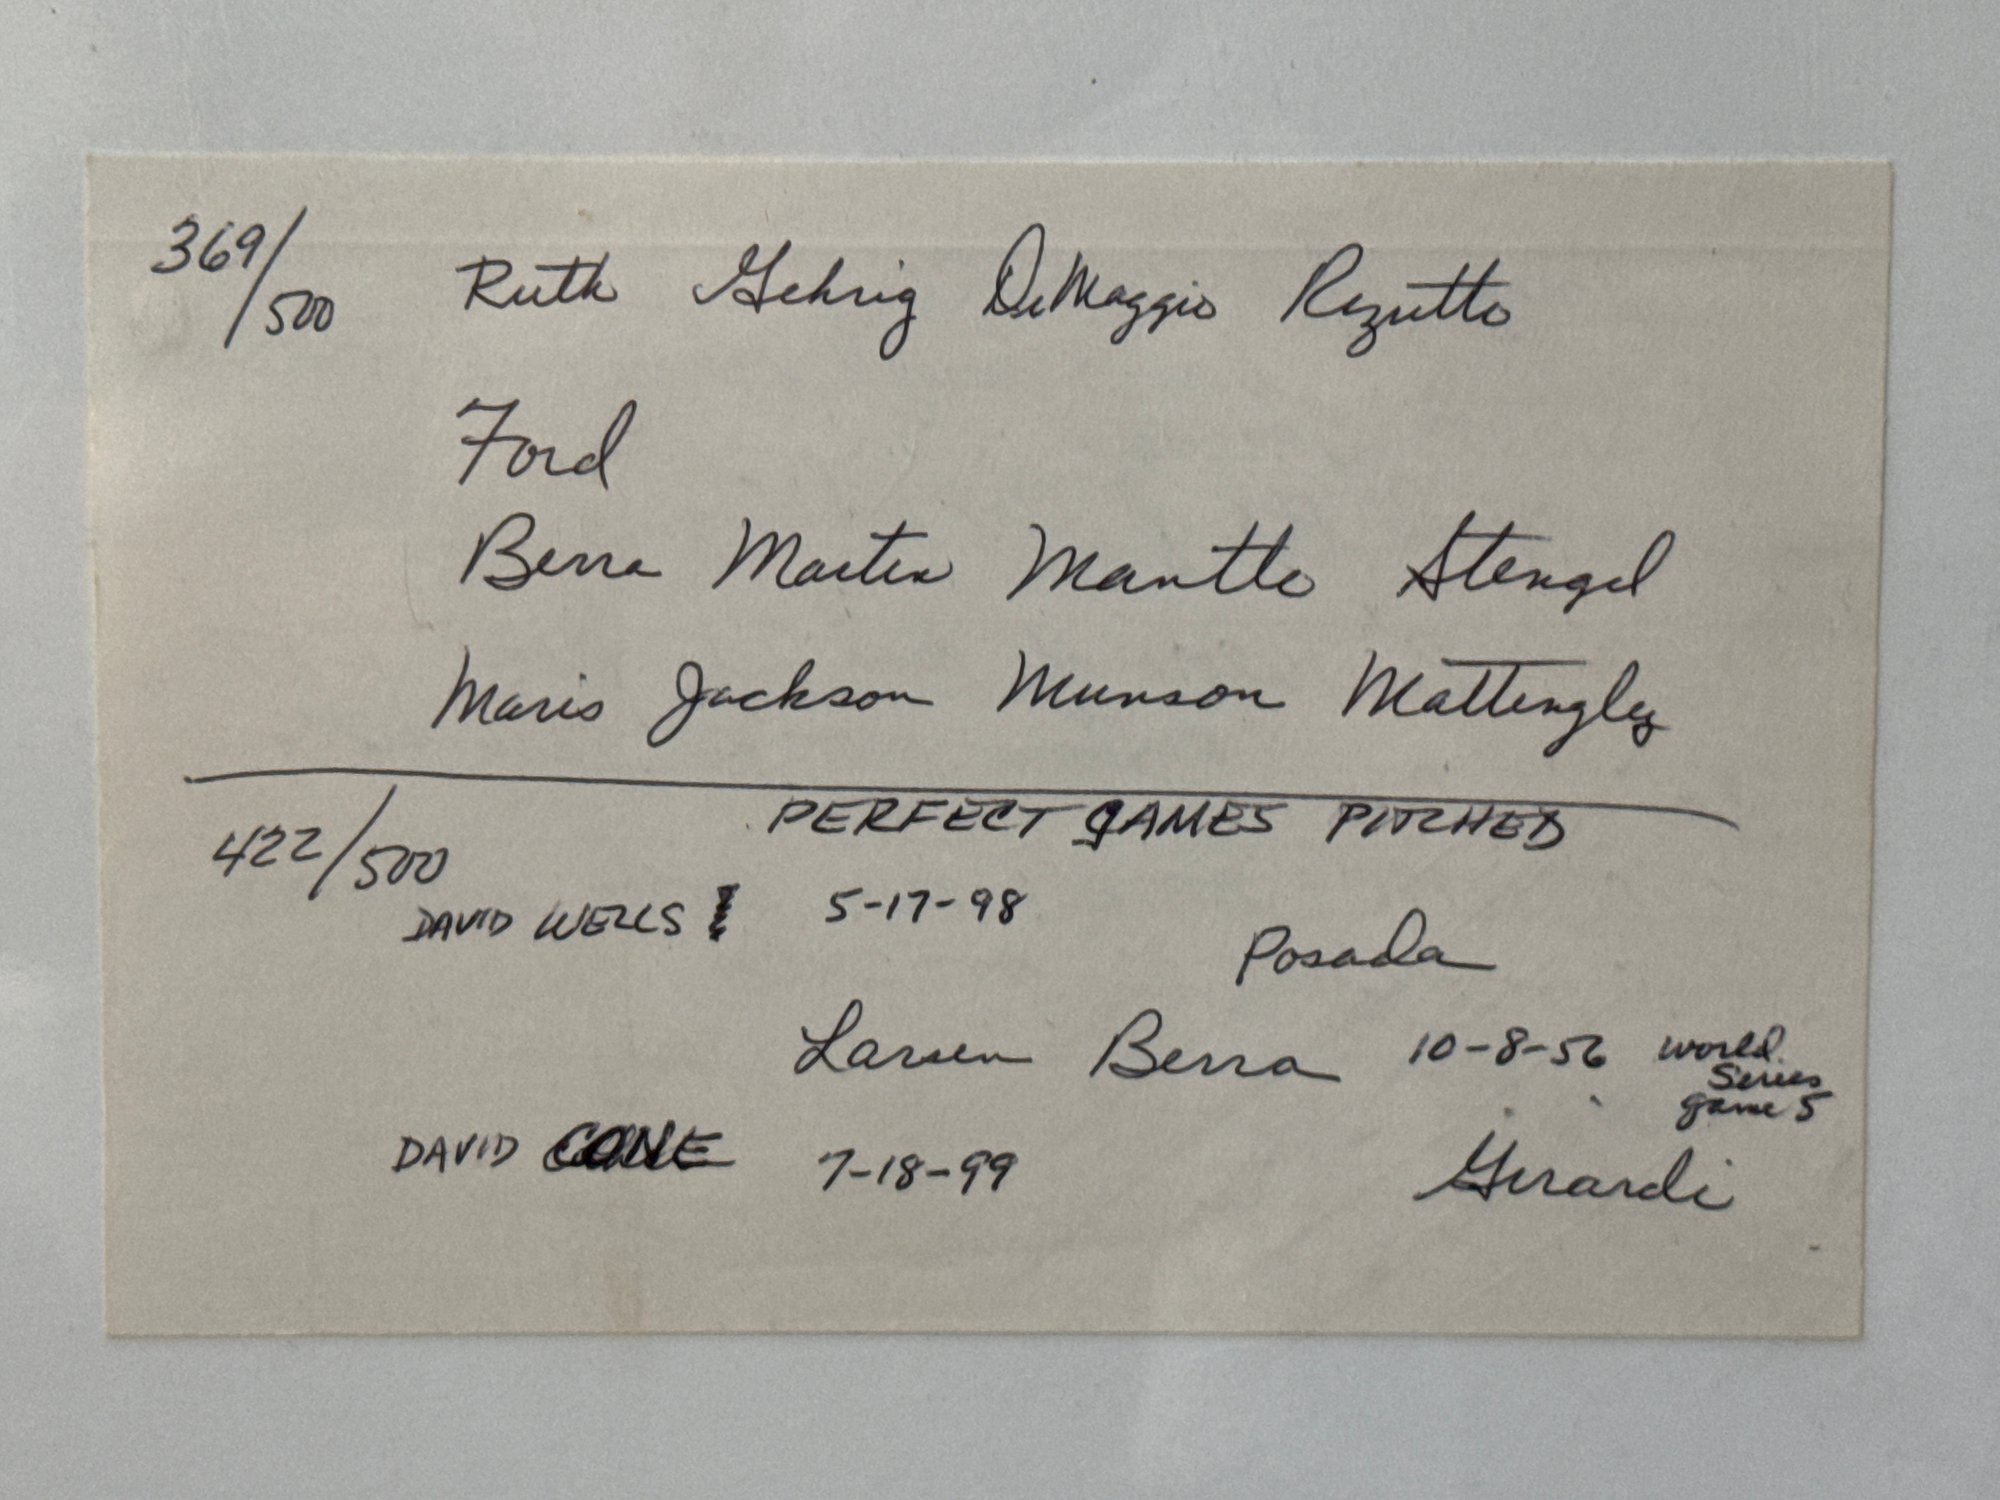 369/500 Ruth Gehrig DiMaggio Rizutto
Ford
Berra Martin Mantle Stengel
Maris Jackson Munson Mattingly
PERFECT GAMES PITCHED
422/500
DAVID WELLS 5-17-98
Posada
Larsen Berra 10-8-56 World
Series
game 5
DAVID CONE 7-18-99 Girardi